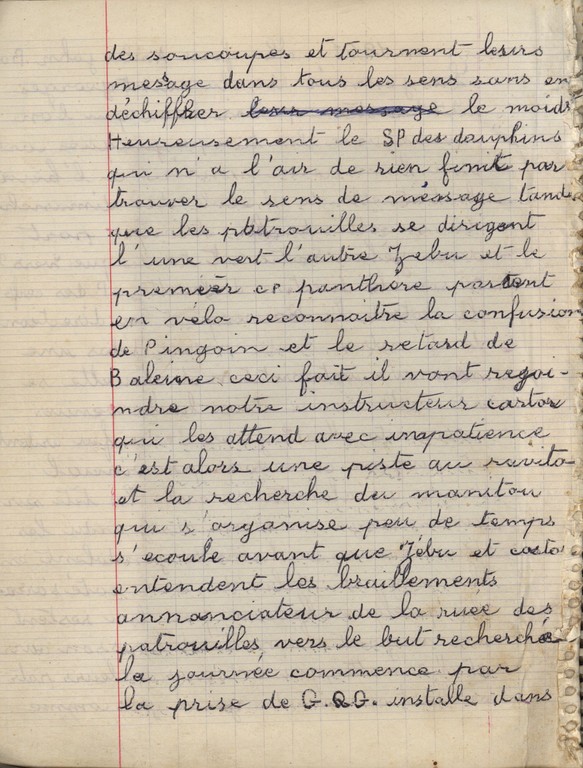 des soucoupes et tournent leurs
message dans tous les sens sans en
déchiffrer leur message le moids
Heureusement le SP des dauphins
qui n'a l'air de rien finit par
trouver le sens de message tandis
que les patrouilles se dirigent
l'une vert l'autre Zebu et le
premier CP panthère partent
en vélo reconnaitre la confusion
de Pingoin et le retard de
Baleine ceci fait il vont rejoi-
ndre notre instructeur castor
qui les attend avec inapatience
c'est alors une piste au ravito
et la recherche du manitou
qui s'organise peu de temps
s'ecoule avant que Zébu et casto
entendent les braillements
annanciateur de la ruée des
patrouilles vers le but recherché
la journée commence par
la prise de G.Q.G. installe dans